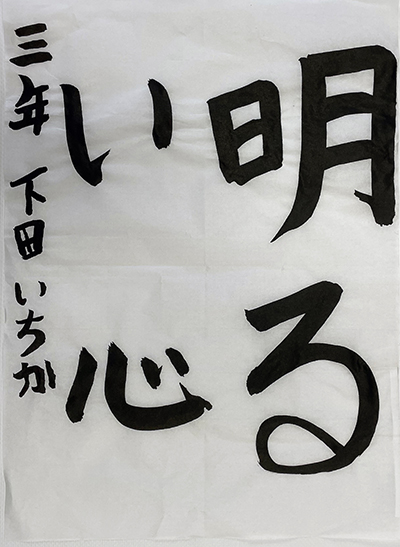 明る
い心
三年 下田いちか